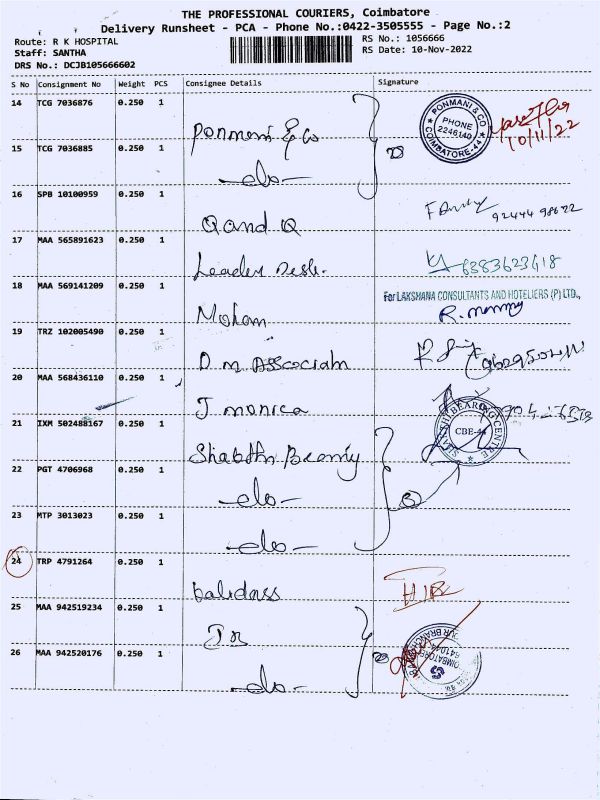 THE PROFESSIONAL COURIERS, Coimbatore
Delivery Runsheet - PCA - Phone No.:0422-3505555 - Page No.:2
Route: R K HOSPITAL
Staff: SANTHA
DRS No.: DCJB105666602
RS No.: 1056666
RS Date: 10-Nov-2022
S No Consignment No Weight PCS Consignee Details Signature
14 TCG 7036876 0.250 1 Ponmani & Co
PONMANI & CO PHONE 2246140 COIMBATORE-44
10/11/22
15 TCG 7036885 0.250 1 -do-
16 SPB 10100959 0.250 1 Q and Q
17 MAA 565891623 0.250 1 Leader Desk. 6383623418
18 MAA 569141209 0.250 1 Moham
For LAKSHANA CONSULTANTS AND HOTELIERS (P) LTD.,
19 TRZ 102005490 0.250 1 D M Associat
20 MAA 568436110 0.250 1 J monica
21 IXM 502488167 0.250 1 Shakthi Bearing
SHAKTHI BEARING CENTRE CBE-44
22 PGT 4706968 0.250 1 -do-
23 MTP 3013023 0.250 1 -do-
24 TRP 4791264 0.250 1 Kalidass
25 MAA 942519234 0.250 1
26 MAA 942520176 0.250 1 -do-